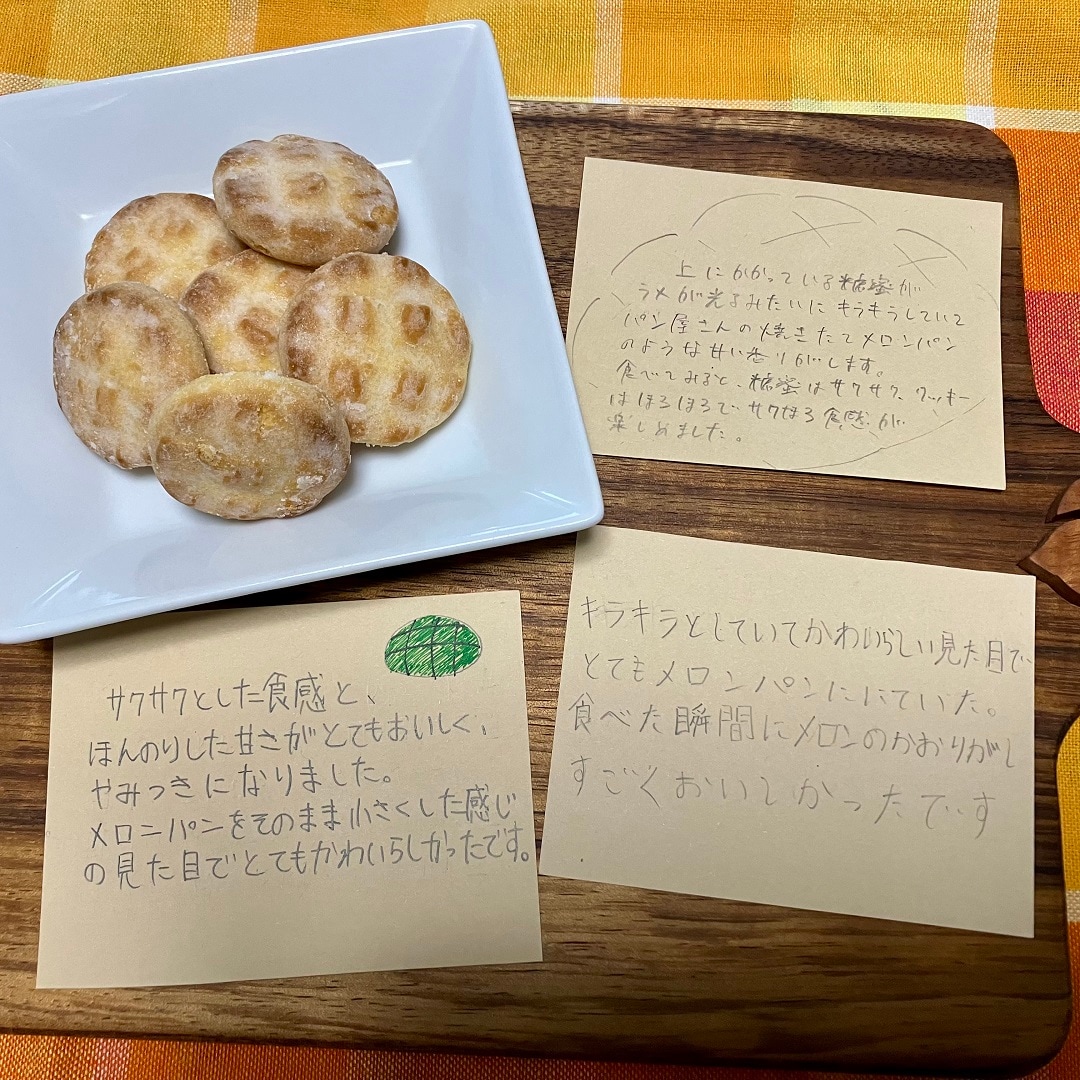 上にかかっている糖蜜が
ラメが光るみたいにキラキラしていて
パン屋さんの焼きたてメロンパン
のような甘い香りがします。
食べてみると、糖蜜はサクサク、クッキー
はほろほろで、サクほろ食感が
楽しめました。
サクサクとした食感と、
ほんのりした甘さがとてもおいしく、
やみつきになりました。
メロンパンをそのまま小さくした感じ
の見た目でとてもかわいらしかったです。
キラキラとしていてかわいらしい見た目で、
とてもメロンパンににていた。
食べた瞬間にメロンのかおりがし
すごくおいしかったです